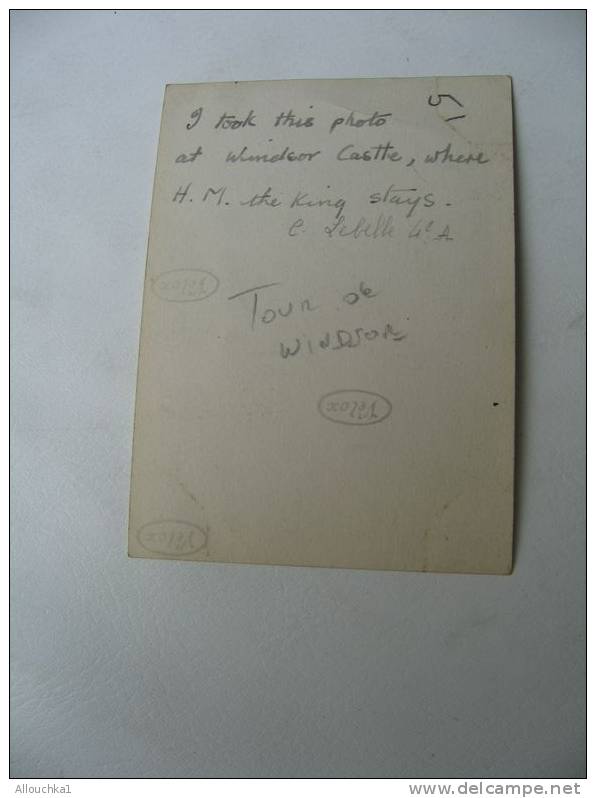 I took this photo
at Windsor Castle, where
H. M. the King stays.
C. Lebelle 4e A
51
TOUR DE
WINDSOR
Velox
Velox
Velox
Allouchka1
www.delcampe.net